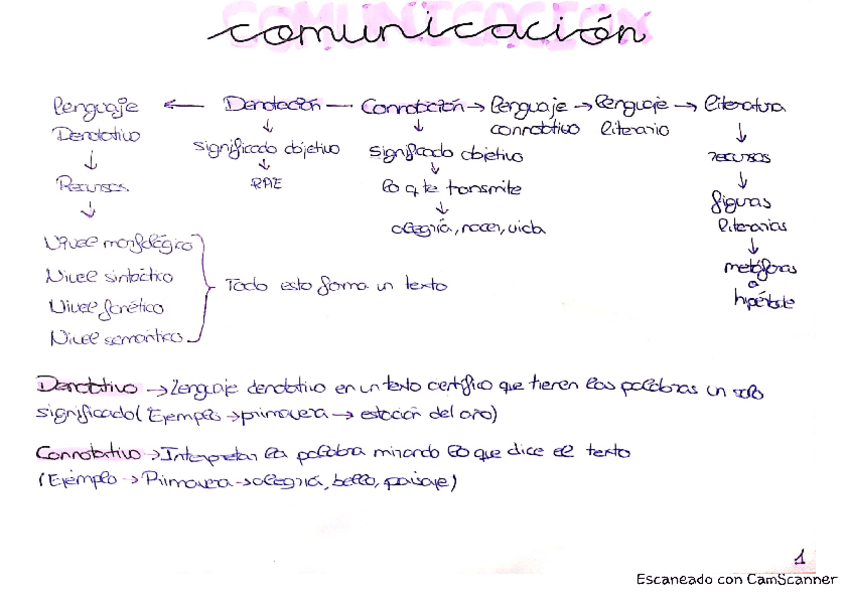 comunicación
Lenguaje ← Denotación — Connotación → Lenguaje → Lenguaje → literatura
Denotativo connotativo literario
↓ ↓ ↓ ↓
significado objetivo significado objetivo recursos
Recursos RAE lo q te transmite figuras
literarias
alegría, nacer, vida
Nivel morfológico
Nivel sintáctico
Nivel fonético
Nivel semántico
Todo esto forma un texto
metáforas
o
hipérbole
Denotativo → Lenguaje denotativo en un texto científico que tienen las palabras un solo
significado (Ejemplo → primavera → estación del año)
Connotativo → Interpretar la palabra mirando lo que dice el texto
(Ejemplo → Primavera → alegría, bello, paisaje)
1
Escaneado con CamScanner